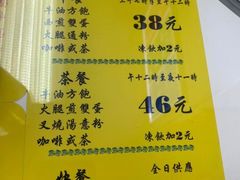 牛油方飽
火腿煎雙蛋
火腿通粉
咖啡或茶
38元
凍飲加2元
茶餐
午十二時至十一時
牛油方飽
火腿煎雙蛋
叉燒湯意粉
咖啡或茶
46元
凍飲加2元
快餐
全日供應